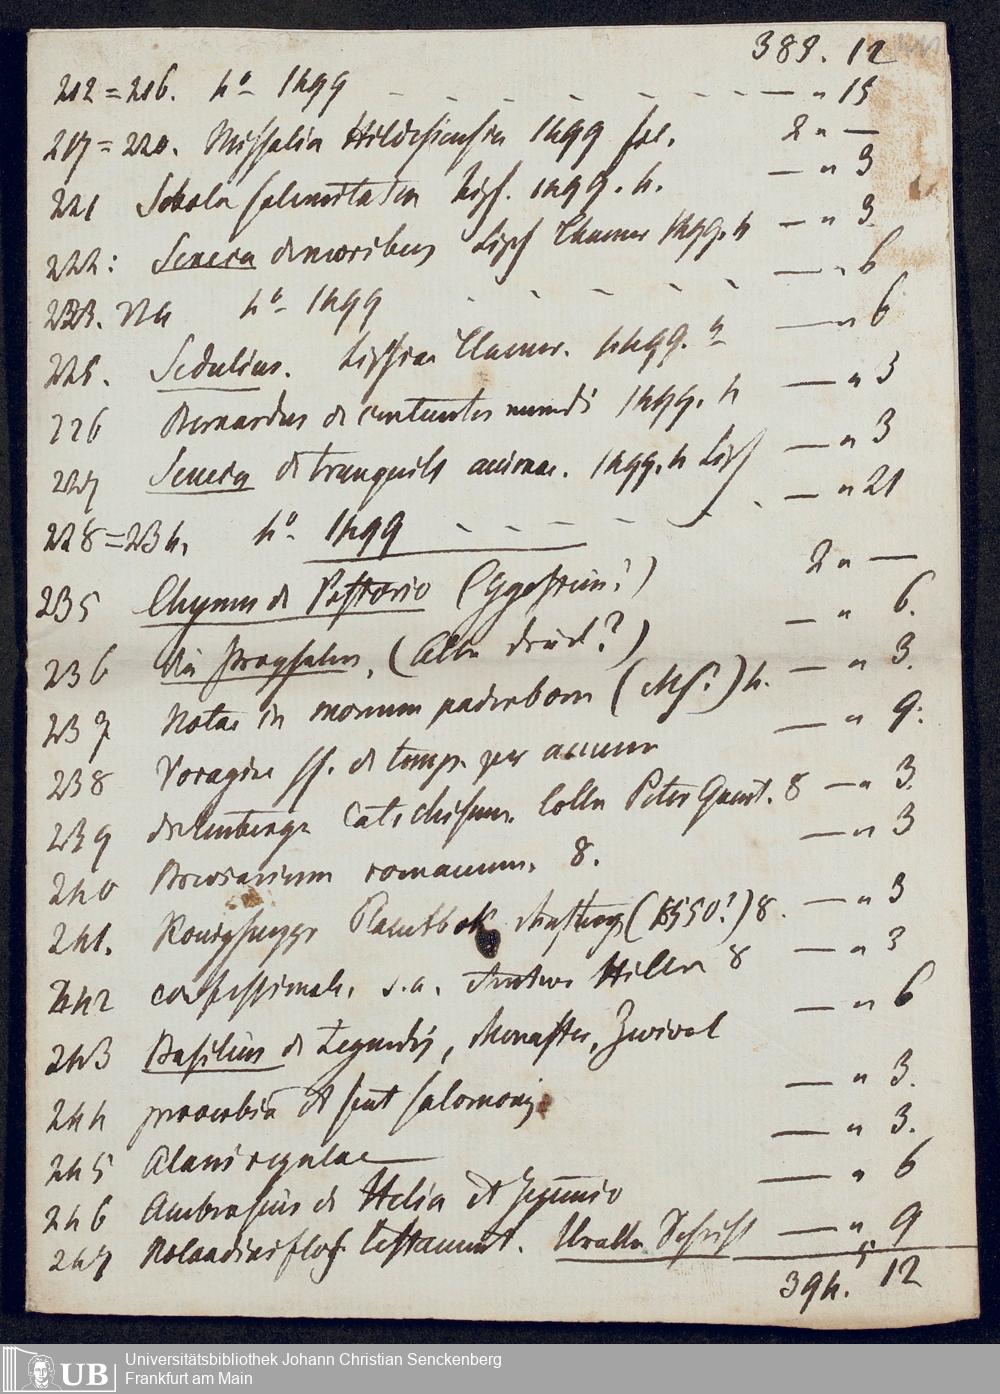 383. 12
212 = 216. 4o 1499 - - - - - - - — „ 15
217 = 220. Missalia Hildesiensia 1499 fol. 2 „ —
221 Scola salernitatum Lips. 1499. 4. — „ 3
222: Seneca de moribus Lips 1499. 4 — „ 3.
223. 24 4o 1499 - - - - - — „ 6
225. Sedulius. 1499. 4 — „ 6
226 Bernardus de contemtu mundi 1499. 4 — „ 3
227 Seneca de tranquilt animae. 1499. 4 Lips — „ 3
228 = 234. 4o 1499 - - - - - - - — „ 21
235 de Pistorio 2 „ —
236 (Alter druck?) — „ 6.
237 Notae in monum paderborn (Ms?) 4. — „ 3.
238 Voragine ss. de temp. per annum — „ 9.
239 Catechismus. Colln Peter Quent. 8 — „ 3.
240 Breviarium romanum. 8. — „ 3
241. (1550?) 8. — „ 3
242 confessionale. s. a. 8 — „ 3
243 Basilius de Legendis, Monaster, Zwivel — „ 6
244 proverbia et sent salomonis — „ 3.
245 Alani regulae — „ 3.
246 Ambrosius de Helia et Jejunio — „ 6
247 Rolandini Testament. Uralte Schrift — „ 9
394. 12
UB
Universitätsbibliothek Johann Christian Senckenberg
Frankfurt am Main